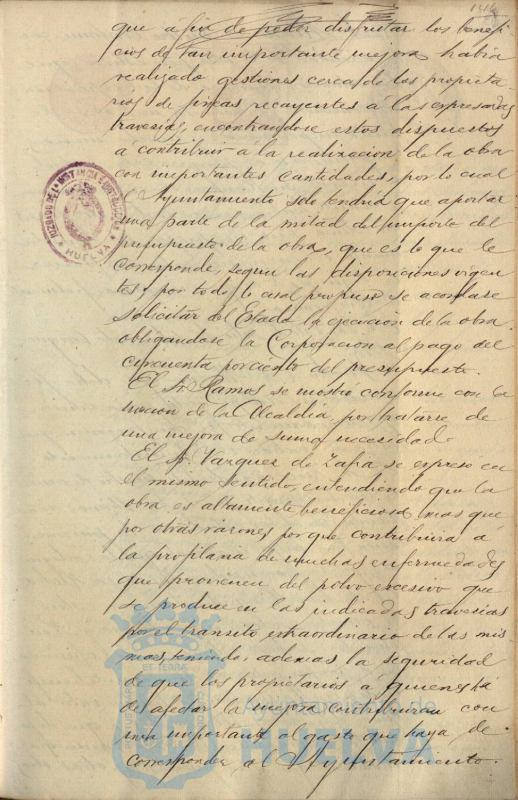 que a fin de poder disfrutar los benefi-
cios de tan importante mejora, habia
realizado gestiones cerca de los propieta-
rios de fincas recayentes á las expresadas
travesias, encontrandose estos dispuestos
á contribuir á la realizacion de la obra
con importantes cantidades, por lo cual
el Ayuntamiento solo tendria que aportar
una parte de la mitad del importe del
presupuesto de la obra, que es lo que le
corresponde, segun las disposiciones vigen-
tes y por todo lo cual propuso se acordase
solicitar del Estado la ejecucion de la obra
obligandose la Corporacion al pago del
cincuenta por ciento del presupuesto.
El Sr. Ramos se mostró conforme con la
mocion de la Alcaldia, por tratarse de
una mejora de suma necesidad.
El Sr. Vazquez de Zafra se expresó en
el mismo sentido, entendiendo que la
obra es altamente beneficiosa, mas que
por otras razones porque contribuirá á
la profilaxia de muchas enfermedades
que provienen del polvo excesivo que
se produce en las indicadas travesias
por el transito extraordinario de las mis-
mas, teniendo, ademas la seguridad
de que los propietarios á quienes há
de afectar la mejora contribuiran con
una importante al gasto que haya de
corresponder al Ayuntamiento.
JUZGADO DE 1ª INSTANCIA E INSTRUCCION
HUELVA
Ayuntamiento de
HUELVA